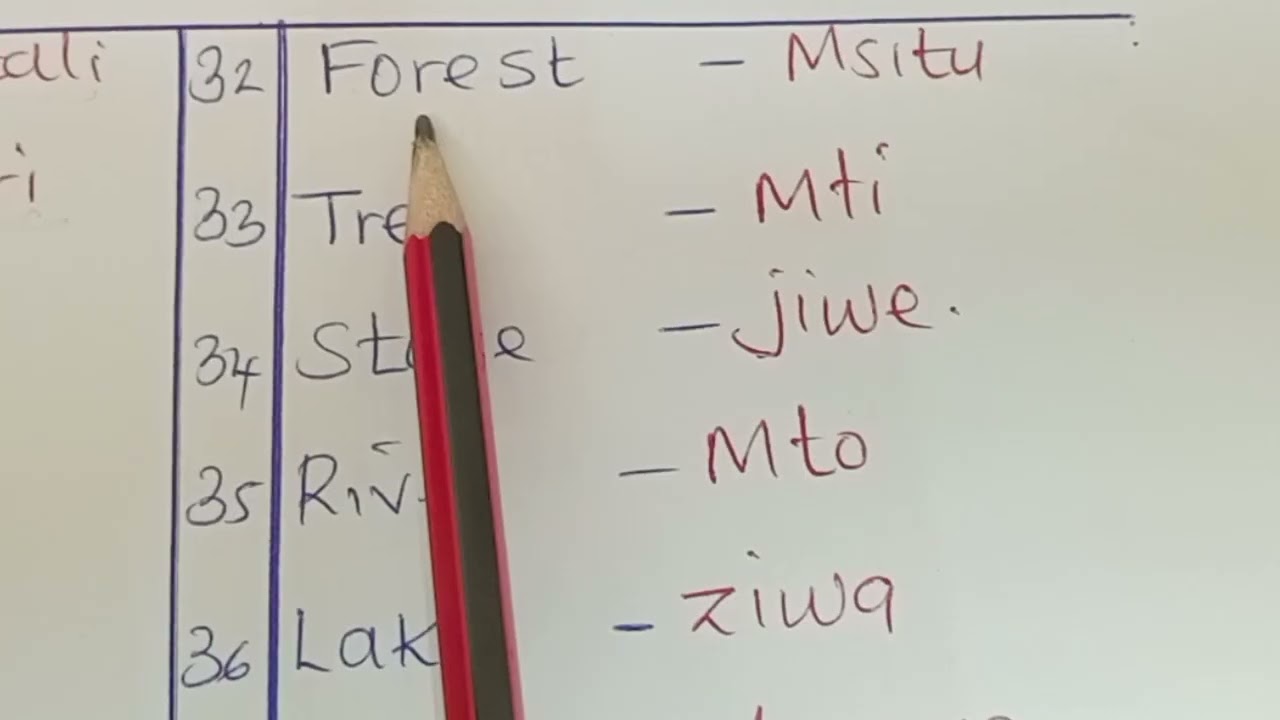 dli
ri
32 Forest - Msitu
33 Tre - Mti
34 St e - jiwe.
35 Riv - Mto
36 Lak - ziwa